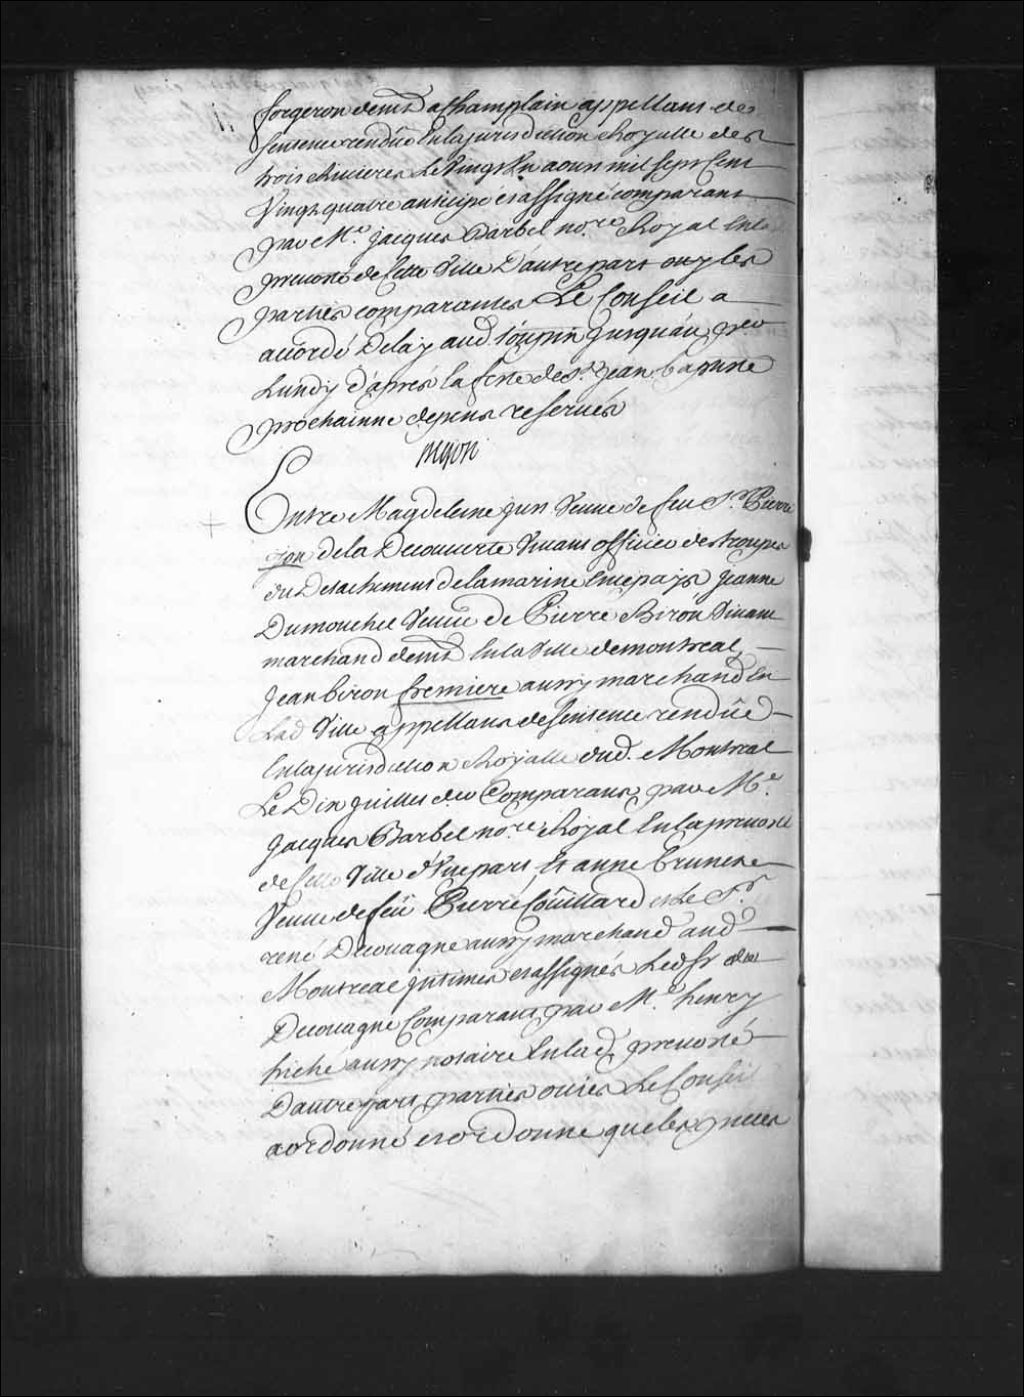 forgeron demt a Champlain appellant de
sentence rendüe En la jurisdiction Royalle des
trois Rivieres Le Vingt Un aoust mil sept Cent
Vingt quatre anticipé et assigné comparant
par Me. jacques Barbel nore. Royal En la
prevosté de Cette Ville D'autre part ouy les
parties comparantes Le Conseil a
accordé Delay aud. toupin jusquau pr
Lundy d'aprés la feste de St. jean baptiste
prochainne depens reservés
Entre Magdeleine just Veuve de feu Sr. Pierre
you de la Decouverte Vivant officier des troupes
du Detachement de la marine En ce paÿs jeanne
Dumouchel Veuve de Pierre Biron Vivant
marchand demt En la Ville de montreal
jean biron fremiere aussy marchand En
Lad Ville appellans de sentence rendüe
En la jurisdiction Royalle dud. Montreal
Le Dix juillet der Comparans par Me.
jacques Barbel nore. Royal En la prevosté
de Cette Ville d'Une part Et anne brunet
Veuve de feü Pierre Coüillard et Le Sr
rené Decouagne aussy marchand aud
Montreal jntimés et assignés Led Sr de
Decouagne Comparant par Me. henry
hiché aussy notaire En lad prevosté
D'autre part parties ouies Le Conseil
a ordonné et ordonne que les pieces